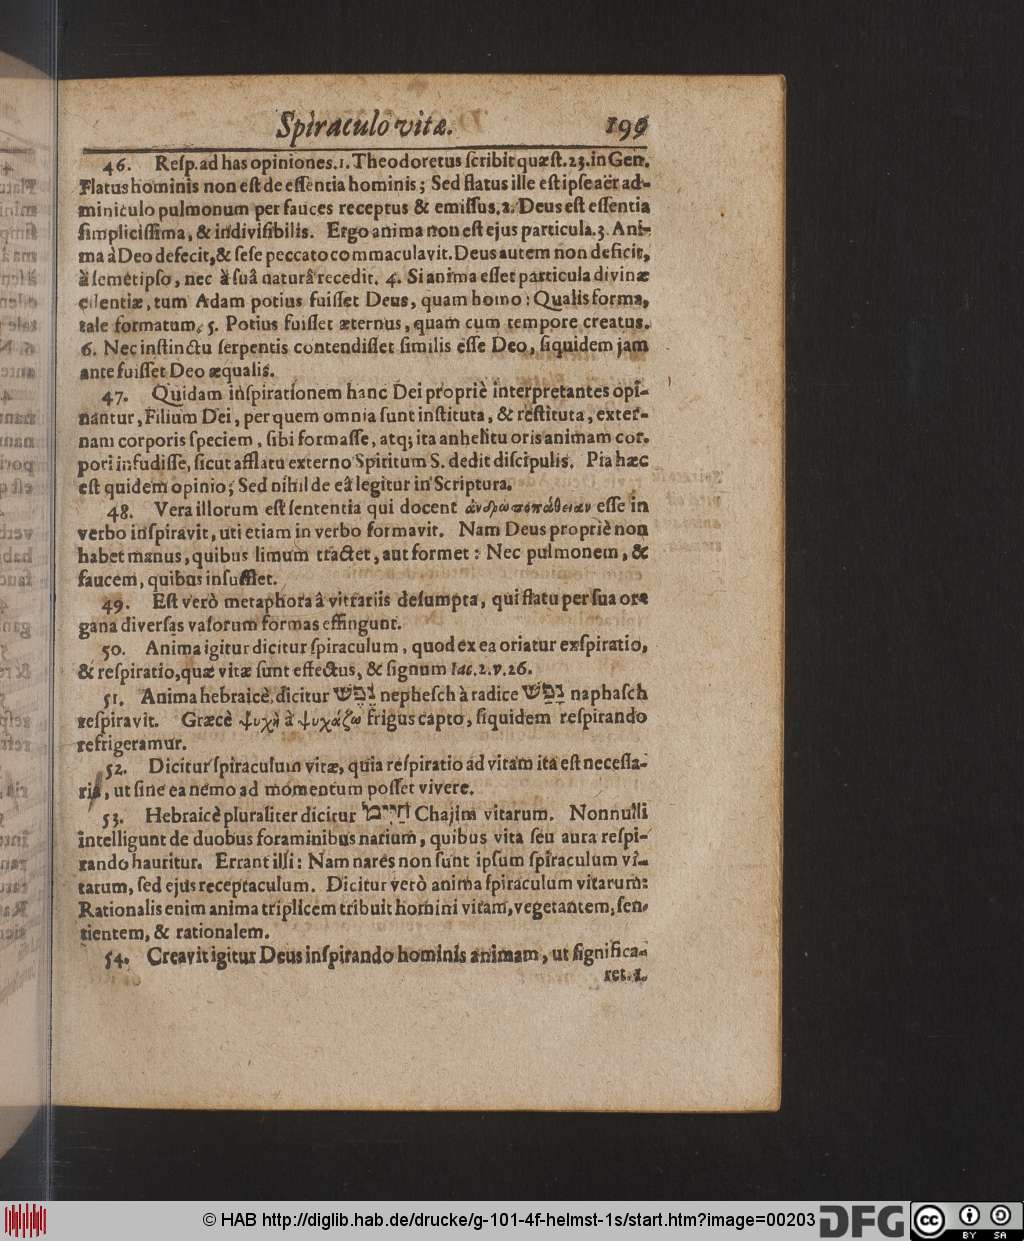 Spiraculo vitæ. 199
46. Reſp. ad has opiniones. 1. Theodoretus ſcribit quæſt. 23. in Gen.
Flatus hominis non eſt de eſſentia hominis; Sed flatus ille eſt ipſe aër ad-
miniculo pulmonum per fauces receptus & emiſſus. 2. Deus eſt eſſentia
ſimpliciſſima, & indiviſibilis. Ergo anima non eſt ejus particula. 3. Ani-
ma à Deo defecit, & ſeſe peccato commaculavit. Deus autem non deficit,
à ſemetipſo, nec à ſuâ naturâ recedit. 4. Si anima eſſet particula divinæ
eſſentiæ, tum Adam potius fuiſſet Deus, quam homo: Qualis forma,
tale formatum. 5. Potius fuiſſet æternus, quam cum tempore creatus.
6. Nec inſtinctu ſerpentis contendiſſet ſimilis eſſe Deo, ſiquidem jam
ante fuiſſet Deo æqualis.
47. Quidam inſpirationem hanc Dei propriè interpretantes opi-
nantur, Filium Dei, per quem omnia ſunt inſtituta, & reſtituta, exter-
nam corporis ſpeciem, ſibi formaſſe, atq; ita anhelitu oris animam cor-
pori infudiſſe, ſicut afflatu externo Spiritum S. dedit diſcipulis. Pia hæc
eſt quidem opinio; Sed nihil de eâ legitur in Scriptura.
48. Vera illorum eſt ſententia qui docent ἀνθρωποπάθειαν eſſe in
verbo inſpiravit, uti etiam in verbo formavit. Nam Deus propriè non
habet manus, quibus limum tractet, aut formet: Nec pulmonem, &
faucem, quibus inſufflet.
49. Eſt verò metaphora â vitrariis deſumpta, qui flatu per ſua ore
gana diverſas vaſorum formas effingunt.
50. Anima igitur dicitur ſpiraculum, quod ex ea oriatur exſpiratio,
& reſpiratio, quæ vitæ ſunt effectus, & ſignum Iac. 2. v. 26.
51. Anima hebraicè dicitur נֶפֶשׁ nepheſch à radice נָפַשׁ naphaſch
reſpiravit. Græcè ψυχὴ à ψυχάζω frigus capto, ſiquidem reſpirando
refrigeramur.
52. Dicitur ſpiraculum vitæ, quia reſpiratio ad vitam ita eſt neceſſa-
ria, ut ſine ea nemo ad momentum poſſet vivere.
53. Hebraicè pluraliter dicitur חַיִּים Chajim vitarum. Nonnulli
intelligunt de duobus foraminibus narium, quibus vita ſeu aura reſpi-
rando hauritur. Errant illi: Nam nares non ſunt ipſum ſpiraculum vi-
tarum, ſed ejus receptaculum. Dicitur verò anima ſpiraculum vitarum:
Rationalis enim anima triplicem tribuit homini vitam, vegetantem, ſen-
tientem, & rationalem.
54. Creavit igitur Deus inſpirando hominis animam, ut ſignifica-
ret. 1.
© HAB http://diglib.hab.de/drucke/g-101-4f-helmst-1s/start.htm?image=00203
DFG
cc BY SA